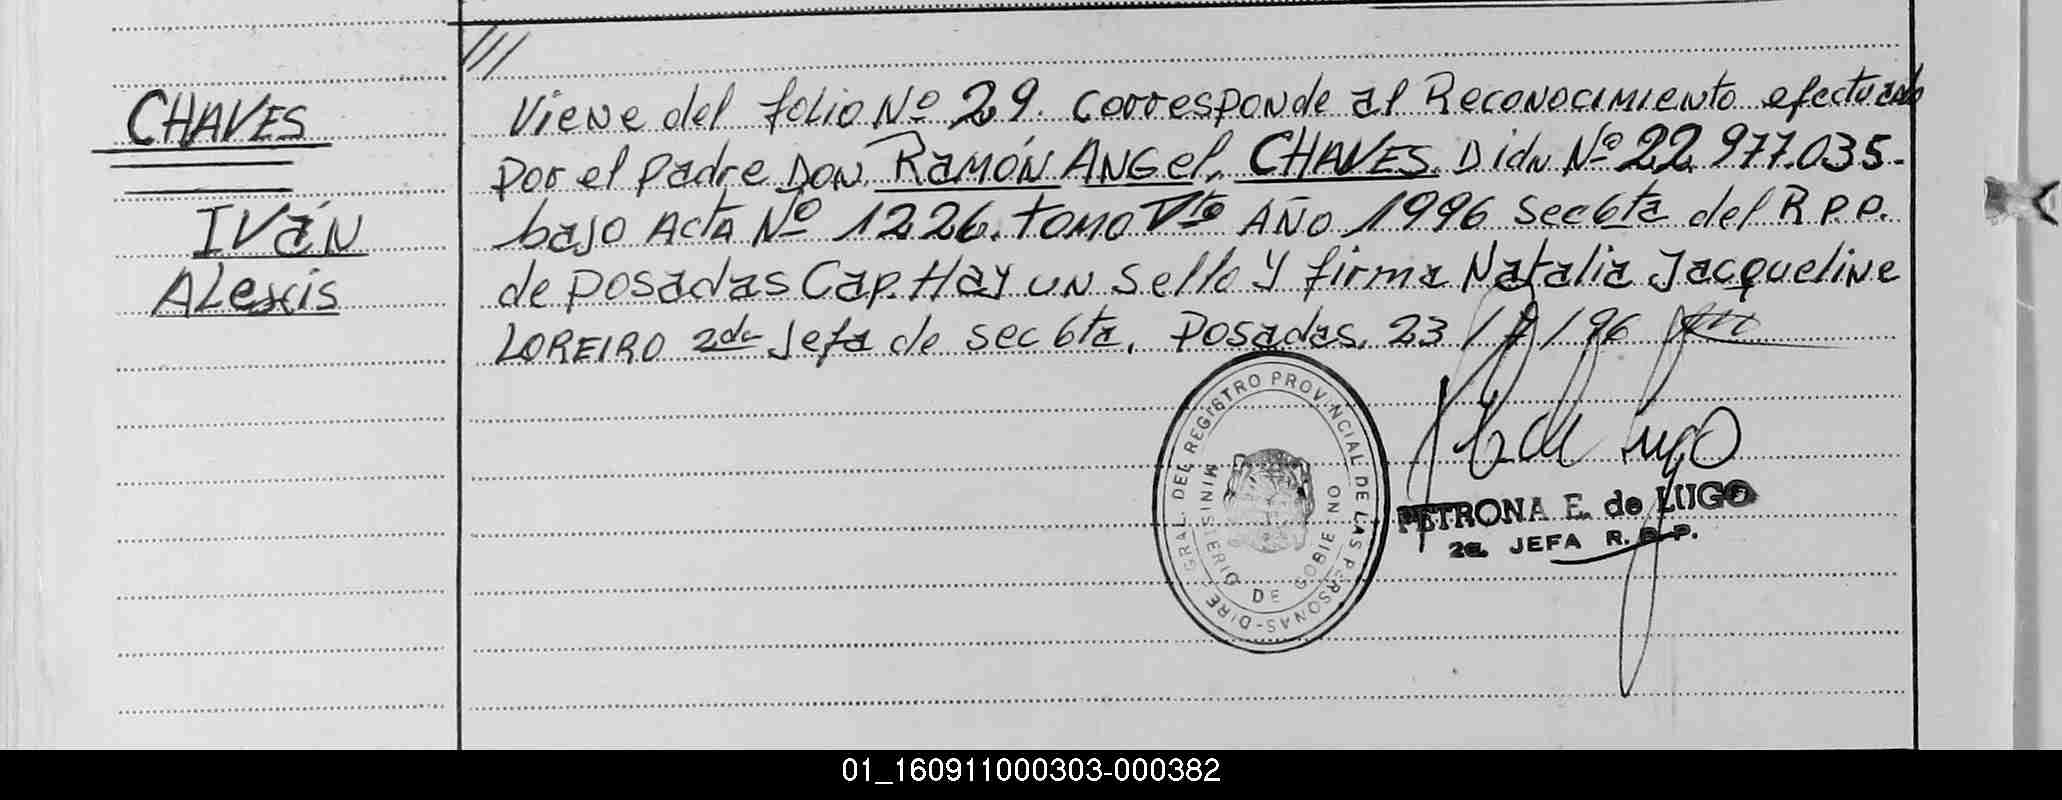 ///
CHAVES
IVáN
ALexis
Viene del folio Nº 29. Corresponde al Reconocimiento efectuado
por el padre DON RAMÓN ANGel, CHAVES. D idn Nº 22.977.035.
bajo Acta Nº 1226. tomo Vto AÑO 1996 Sec 6ta del R.P.P.
de posadas Cap. Hay un sello y firma Natalia Jacqueline
LOREIRO 2da Jefa de sec 6ta. Posadas. 23/ /96
DIRE. GRAL. DEL REGISTRO PROVINCIAL DE LAS PERSONAS-
MINISTERIO DE GOBIERNO
PETRONA E. de LUGO
2a. JEFA R. P. P.
01_160911000303-000382